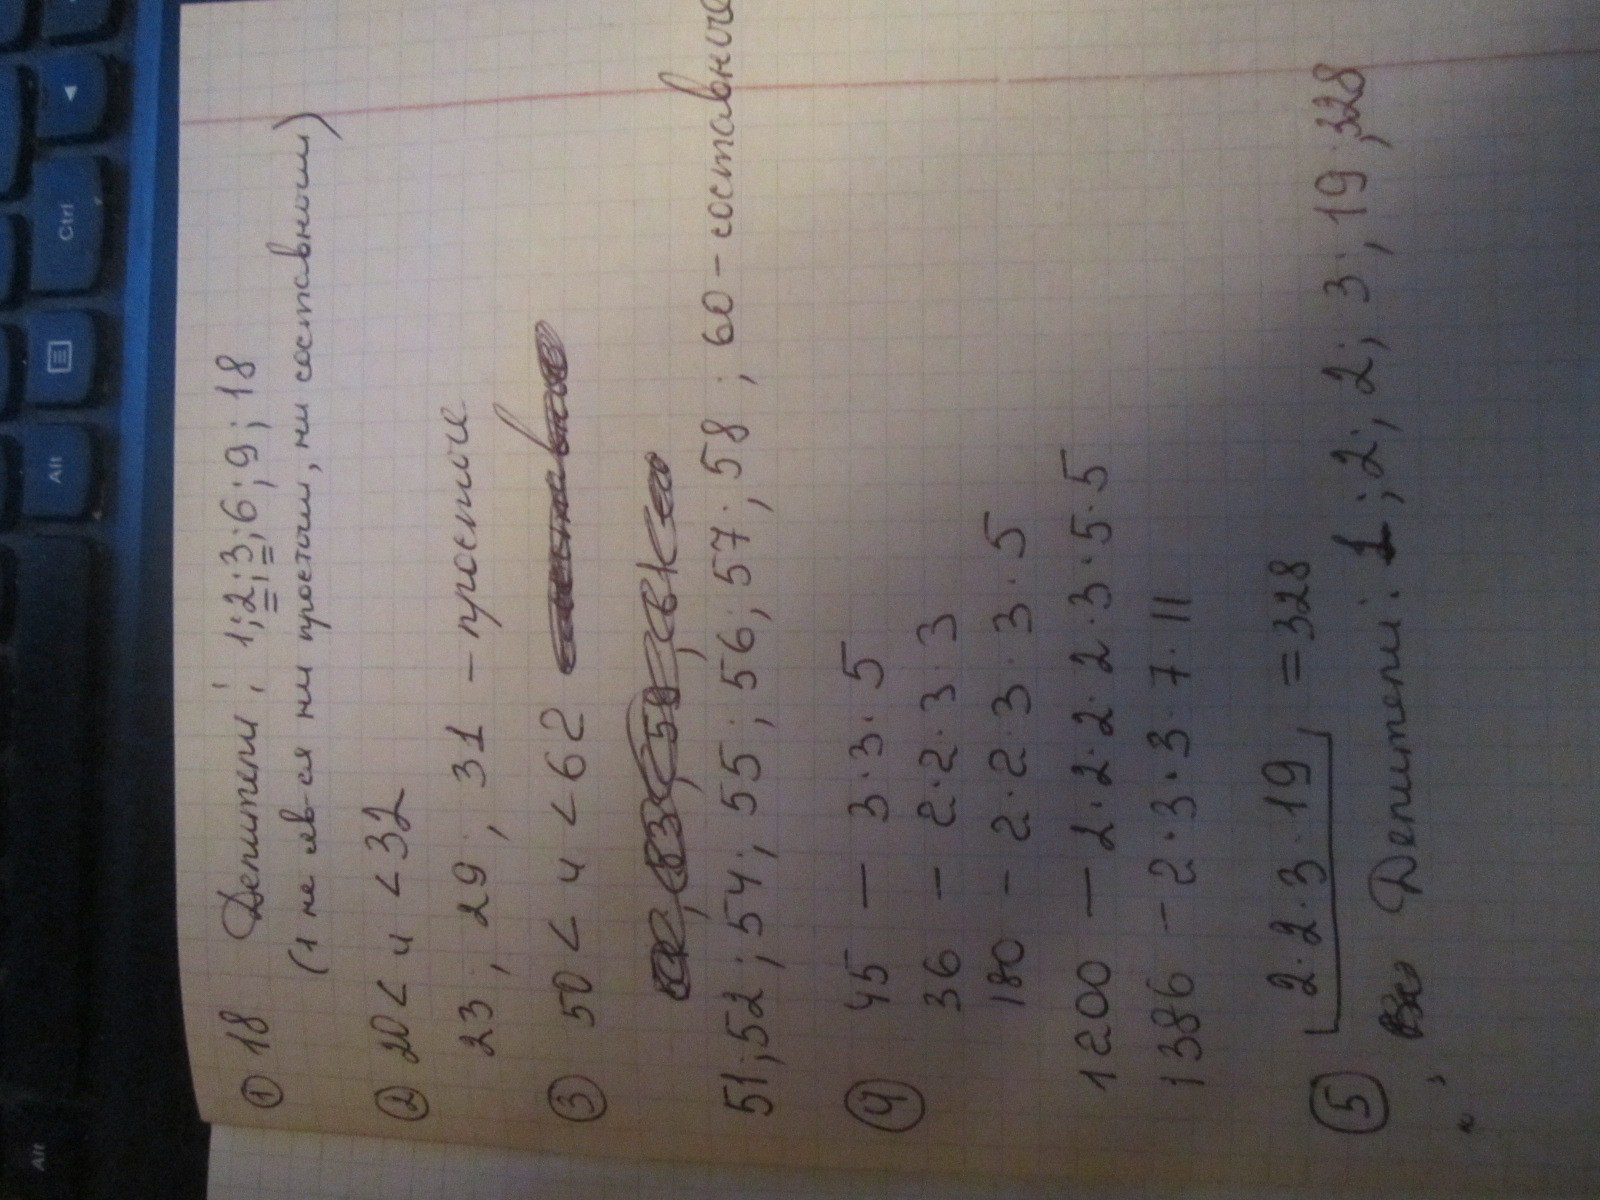 ① 18 Делители: 1; 2; 3; 6; 9; 18
(1 не яв-ся ни простым, ни составным)
② 20 < ч < 32
23; 29; 31 – простые
③ 50 < ч < 62
51; 52; 54; 55; 56; 57; 58; 60 – составные
④ 45 – 3·3·5
36 – 2·2·3·3
180 – 2·2·3·3·5
1200 – 2·2·2·2·3·5·5
1386 – 2·3·3·7·11
⑤ 2·2·3·19 = 328
Делители: 1; 2; 2; 3; 19; 328
Alt
Alt
Ctrl